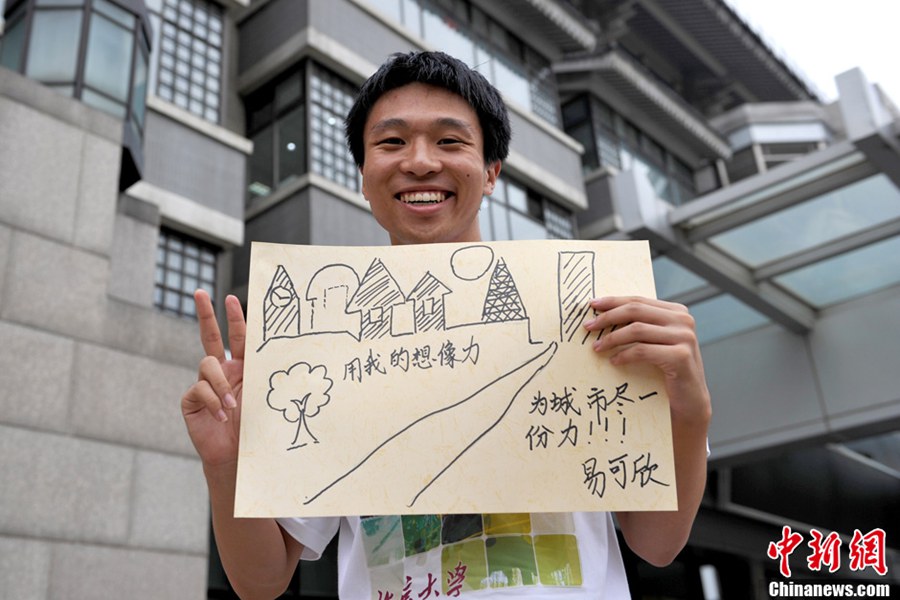 用我的想像力
为城市尽一
份力!!!
易可欣
大学
中新网
Chinanews.com